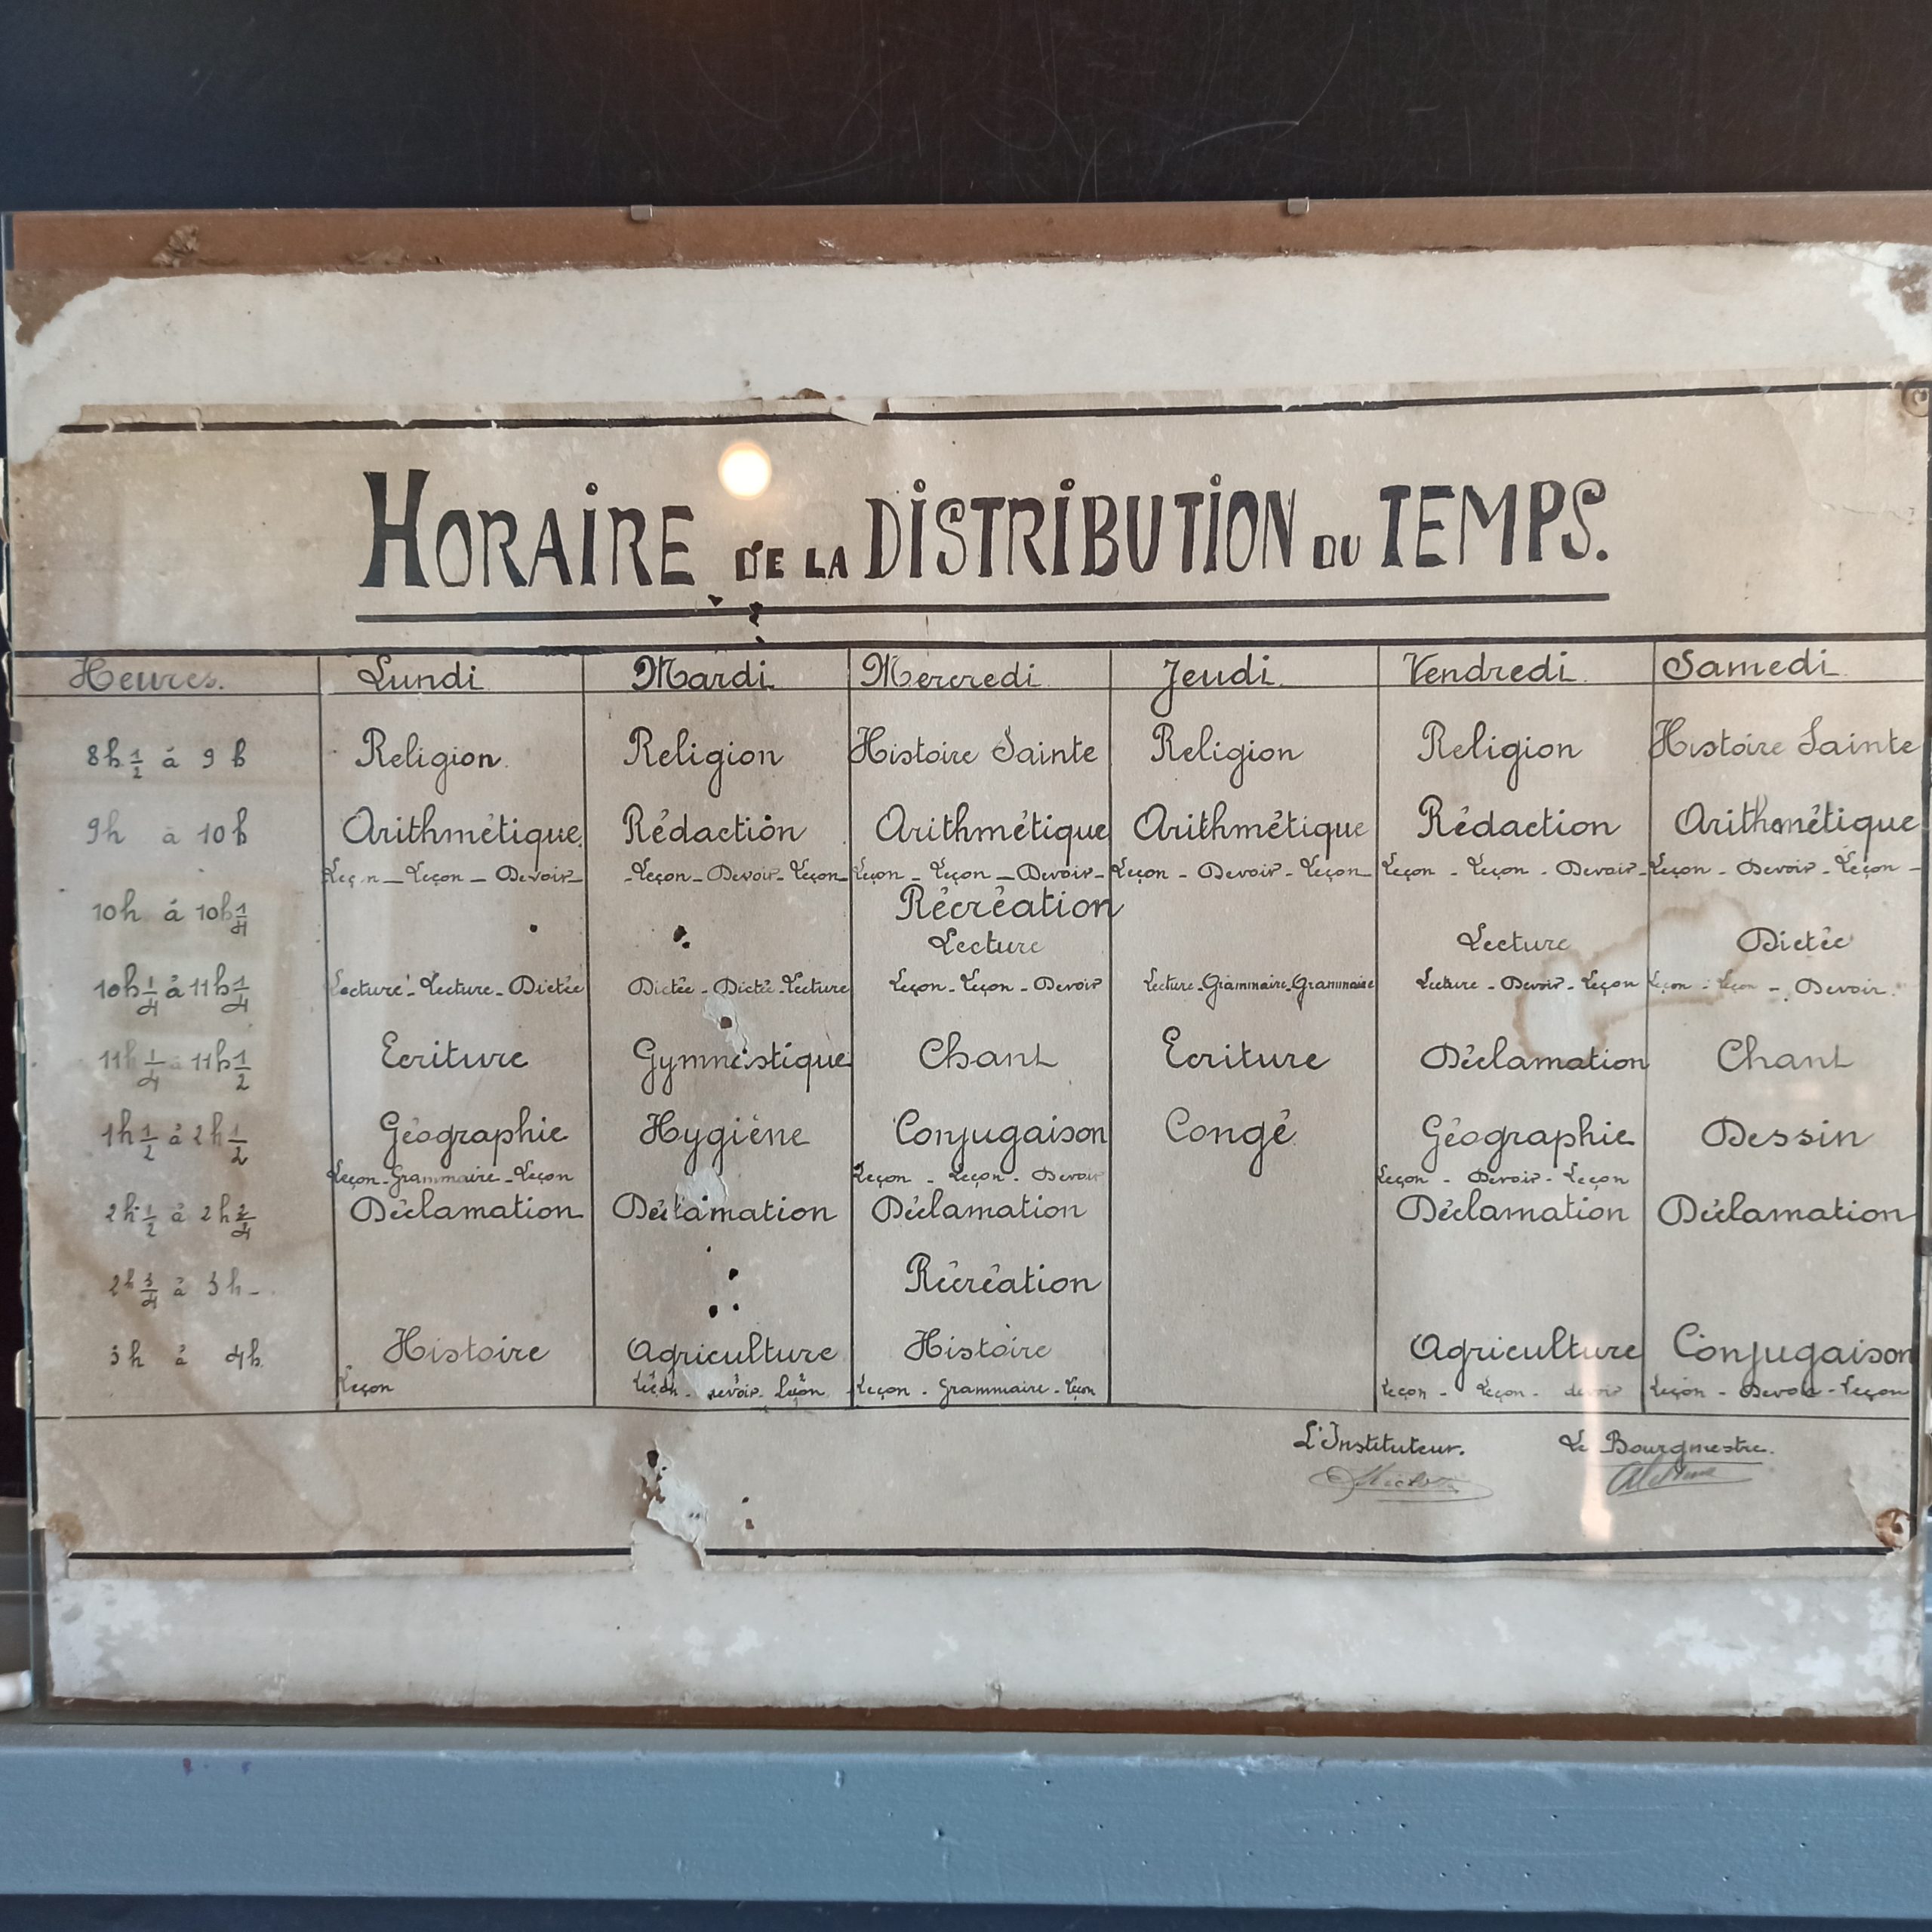 HORAIRE DE LA DISTRIBUTION DU TEMPS.
Heures. Lundi Mardi Mercredi Jeudi Vendredi Samedi
8h 1/2 à 9h Religion Religion Histoire Sainte Religion Religion Histoire Sainte
9h à 10h Arithmétique Rédaction Arithmétique Arithmétique Rédaction Arithmétique
Leçon - Leçon - Devoir - Leçon - Devoir - Leçon - Leçon - Leçon - Devoir - Leçon - Devoir - Leçon - Leçon - Leçon - Devoir - Leçon - Devoir - Leçon -
10h à 10h 1/4 Récréation
Lecture Lecture Dictée
10h 1/4 à 11h 1/4 Lecture - Lecture - Dictée Dictée - Dictée - Lecture Leçon - Leçon - Devoir Lecture - Grammaire - Grammaire Lecture - Devoir - Leçon Leçon - Leçon - Devoir.
11h 1/4 à 11h 1/2 Ecriture Gymnastique Chant Ecriture Déclamation Chant
1h 1/2 à 2h 1/2 Géographie Hygiène Conjugaison Congé Géographie Dessin
Leçon - Grammaire - Leçon Leçon - Leçon - Devoir Leçon - Devoir - Leçon
2h 1/2 à 2h 3/4 Déclamation Déclamation Déclamation Déclamation Déclamation
2h 3/4 à 3h - Récréation
3h à 4h Histoire Agriculture Histoire Agriculture Conjugaison
Leçon Leçon - devoir - Leçon Leçon - Grammaire - Leçon Leçon - Leçon - devoir Leçon - Devoir - Leçon
L'Instituteur. Le Bourgmestre.